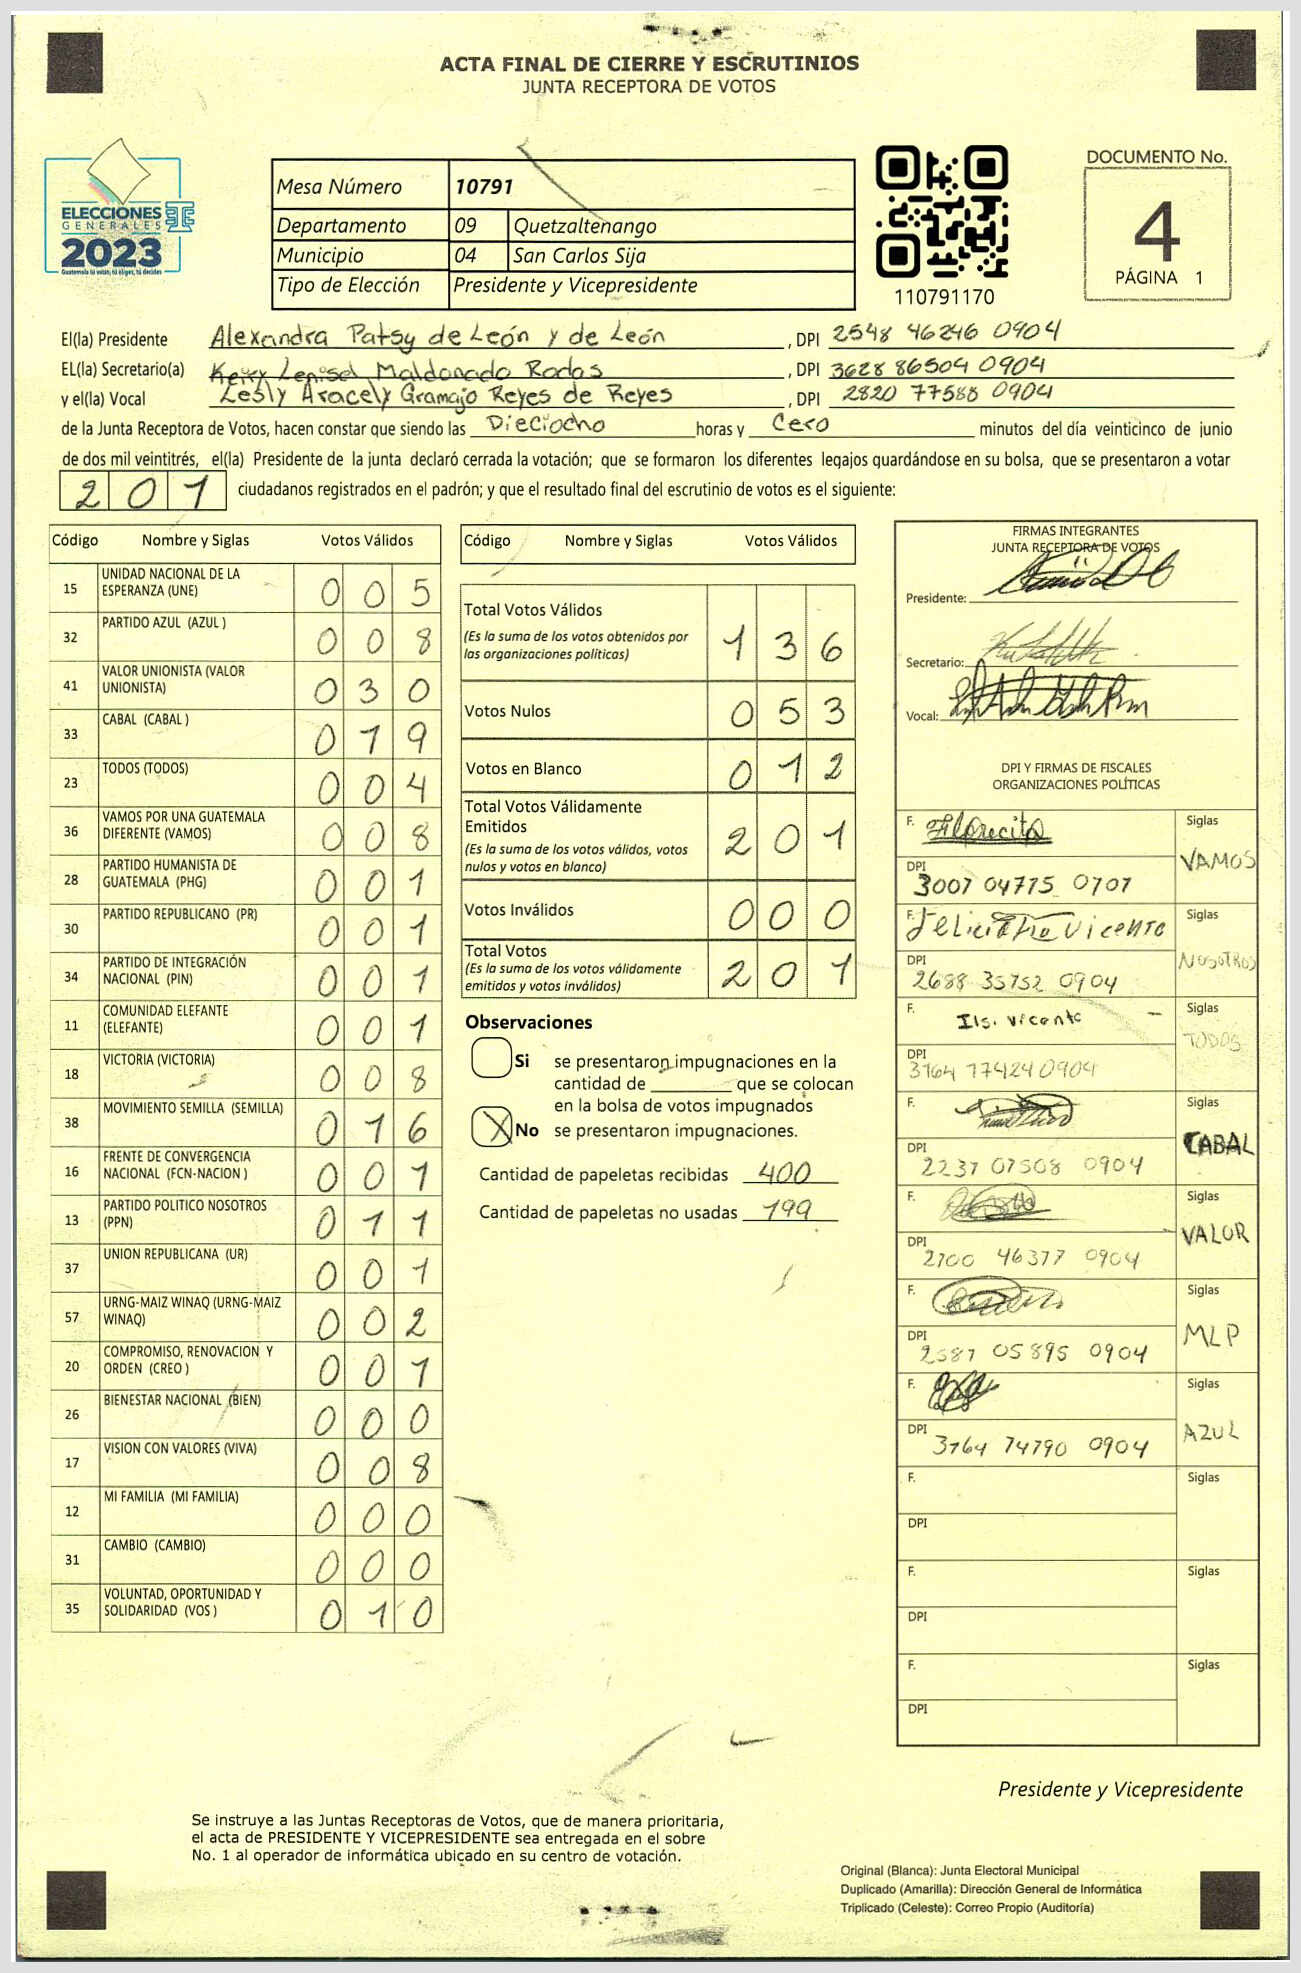 ACTA FINAL DE CIERRE Y ESCRUTINIOS
JUNTA RECEPTORA DE VOTOS
ELECCIONES
GENERALES
2023
Guatemala tú votas, tú eliges, tú decides
Mesa Número 10791
Departamento 09 Quetzaltenango
Municipio 04 San Carlos Sija
Tipo de Elección Presidente y Vicepresidente
110791170
DOCUMENTO No.
4
PÁGINA 1
El(la) Presidente Alexandra Patsy de León y de León, DPI 2548 46246 0904
EL(la) Secretario(a) Maldonado Rodas, DPI 3628 86504 0904
y el(la) Vocal Lesly Aracely Gramajo Reyes de Reyes, DPI 2820 77588 0904
de la Junta Receptora de Votos, hacen constar que siendo las Dieciocho horas y Cero minutos del día veinticinco de junio
de dos mil veintitrés, el(la) Presidente de la junta declaró cerrada la votación; que se formaron los diferentes legajos guardándose en su bolsa, que se presentaron a votar
201 ciudadanos registrados en el padrón; y que el resultado final del escrutinio de votos es el siguiente:
Código Nombre y Siglas Votos Válidos
15 UNIDAD NACIONAL DE LA
ESPERANZA (UNE) 005
32 PARTIDO AZUL (AZUL ) 008
41 VALOR UNIONISTA (VALOR
UNIONISTA) 030
33 CABAL (CABAL ) 019
23 TODOS (TODOS) 004
36 VAMOS POR UNA GUATEMALA
DIFERENTE (VAMOS) 008
28 PARTIDO HUMANISTA DE
GUATEMALA (PHG) 001
30 PARTIDO REPUBLICANO (PR) 001
34 PARTIDO DE INTEGRACIÓN
NACIONAL (PIN) 001
11 COMUNIDAD ELEFANTE
(ELEFANTE) 001
18 VICTORIA (VICTORIA) 008
38 MOVIMIENTO SEMILLA (SEMILLA) 016
16 FRENTE DE CONVERGENCIA
NACIONAL (FCN-NACION ) 001
13 PARTIDO POLITICO NOSOTROS
(PPN) 011
37 UNION REPUBLICANA (UR) 001
57 URNG-MAIZ WINAQ (URNG-MAIZ
WINAQ) 002
20 COMPROMISO, RENOVACION Y
ORDEN (CREO ) 001
26 BIENESTAR NACIONAL (BIEN) 000
17 VISION CON VALORES (VIVA) 008
12 MI FAMILIA (MI FAMILIA) 000
31 CAMBIO (CAMBIO) 000
35 VOLUNTAD, OPORTUNIDAD Y
SOLIDARIDAD (VOS ) 010
Código Nombre y Siglas Votos Válidos
Total Votos Válidos 136
(Es la suma de los votos obtenidos por
las organizaciones políticas)
Votos Nulos 053
Votos en Blanco 012
Total Votos Válidamente
Emitidos 201
(Es la suma de los votos válidos, votos
nulos y votos en blanco)
Votos Inválidos 000
Total Votos 201
(Es la suma de los votos válidamente
emitidos y votos inválidos)
Observaciones
Si se presentaron impugnaciones en la
cantidad de ________ que se colocan
en la bolsa de votos impugnados
X No se presentaron impugnaciones.
Cantidad de papeletas recibidas 400
Cantidad de papeletas no usadas 199
FIRMAS INTEGRANTES
JUNTA RECEPTORA DE VOTOS
Presidente:
Secretario:
Vocal:
DPI Y FIRMAS DE FISCALES
ORGANIZACIONES POLÍTICAS
F. Siglas
VAMOS
DPI
3007 04775 0707
F. Vicente Siglas
NOSOTROS
DPI
2688 35752 0904
F. Vicente Siglas
TODOS
DPI
3764 77424 0904
F. Siglas
CABAL
DPI
2237 07508 0904
F. Siglas
VALOR
DPI
2700 46377 0904
F. Siglas
MLP
DPI
2587 05895 0904
F. Siglas
AZUL
DPI
3764 74790 0904
F. Siglas
DPI
F. Siglas
DPI
F. Siglas
DPI
Presidente y Vicepresidente
Se instruye a las Juntas Receptoras de Votos, que de manera prioritaria,
el acta de PRESIDENTE Y VICEPRESIDENTE sea entregada en el sobre
No. 1 al operador de informática ubicado en su centro de votación.
Original (Blanca): Junta Electoral Municipal
Duplicado (Amarilla): Dirección General de Informática
Triplicado (Celeste): Correo Propio (Auditoría)